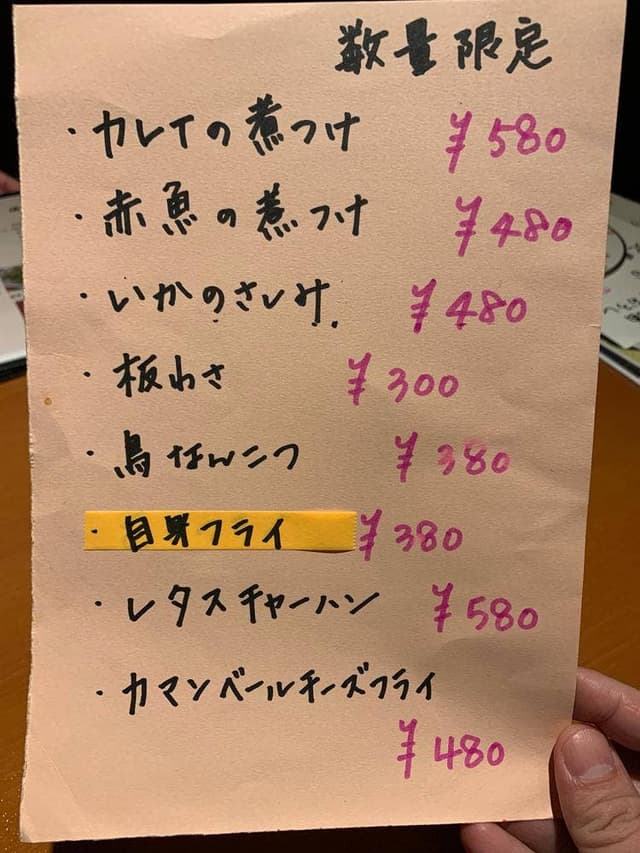 数量限定
・カレイの煮つけ ¥580
・赤魚の煮つけ ¥480
・いかのさしみ ¥480
・板わさ ¥300
・鳥なんこつ ¥380
・自身フライ ¥380
・レタスチャーハン ¥580
・カマンベールチーズフライ
¥480